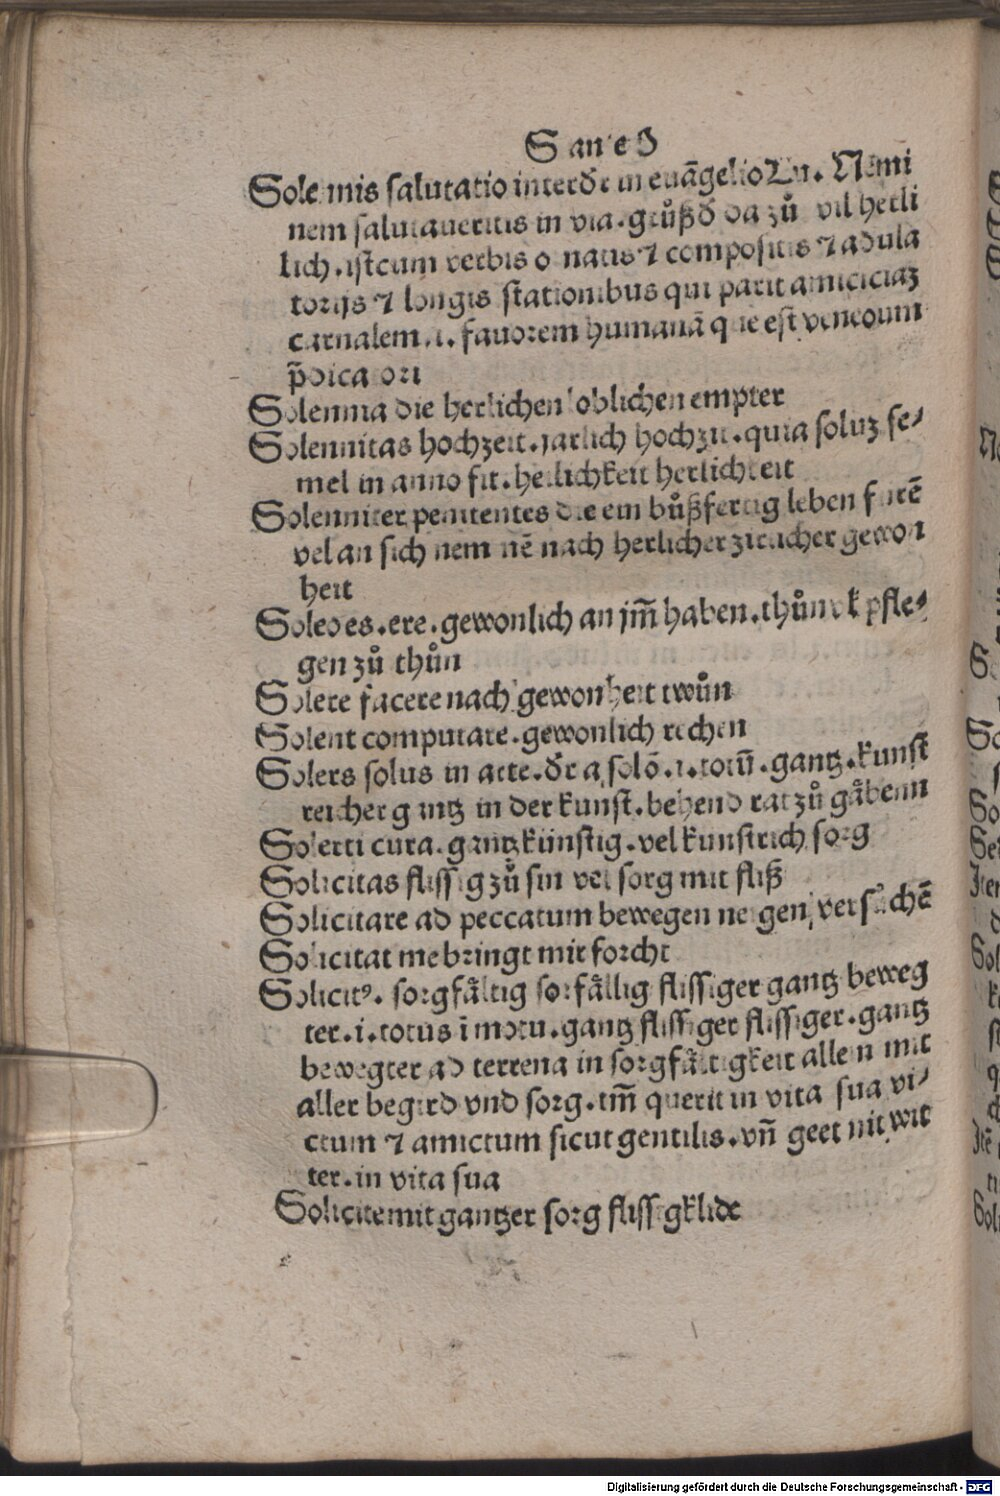 S ante O
Solemnis salutatio interdr in euāgelio Lu. Nemi
nem salutaueritis in via. grůßđ da zů vil herli
lich. est cum verbis ornatis ⁊ compositis ⁊ adula
torijs ⁊ longis stationibus qui parit amiciciaz
carnalem .i. fauorem humanā que est venenum
p̄dicatori
Solennia die herlichen loblichen empter
Solennitas hochzeit. jarlich hochzit. quia soluz se⸗
mel in anno fit. heilichkeit herlichkeit
Solenniter penitentes die ein bůßfertig leben fürē
vel an sich nem nē nach herlicher zitlicher gewon
heit
Soleo es. ere. gewonlich an jm̄ haben. thůn vel pfle⸗
gen zů thůn
Solere facere nach gewonheit twůn
Solent computare. gewonlich rechen
Solers solus in arte. dr a solō .i. totū. gantz. kunst
reicher gantz in der kunst. behend rat zů gåbenn
Solerti cura. gantz künstig. vel kunstrich sorg
Solicitas flissig zů sin vel sorg mit fliß
Solicitare ad peccatum bewegen neigen versůchē
Solicitat me bringt mir forcht
Solicitꝰ. sorgfåltig sorfållig flissiger gantz beweg
ter .i. totus ī motu. gantz flissiger flissiger. gantz
bewegter ad terrena in sorgfåltigkeit allein mit
aller begird vnd sorg. tm̄ querit in vita sua vi⸗
ctum ⁊ amictum sicut gentilis. vn̄ geet nit wit
ter. in vita sua
Solicite mit gantzer sorg flissigklide
Digitalisierung gefördert durch die Deutsche Forschungsgemeinschaft - DFG